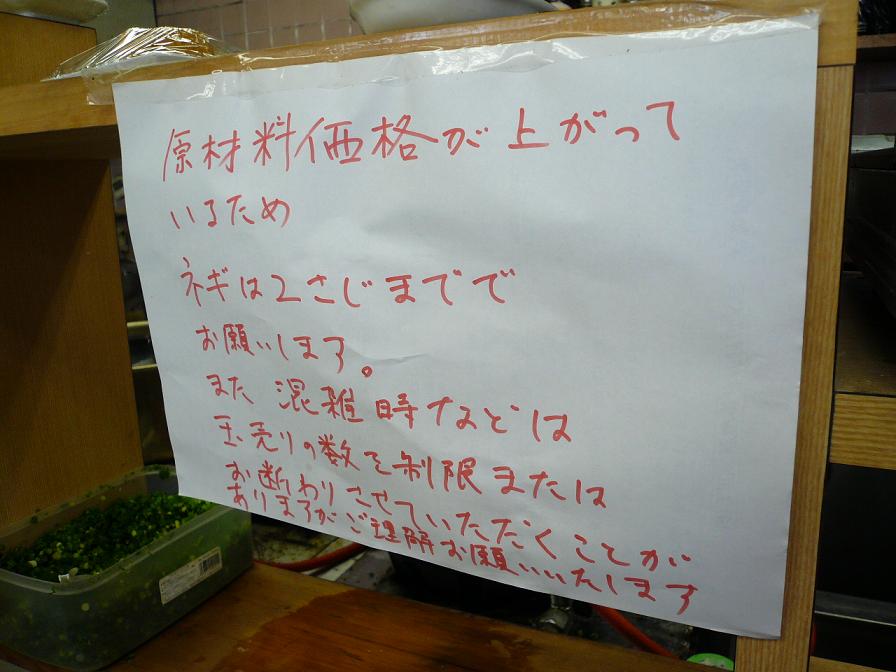 原材料価格が上がって
いるため
ネギは2さじまでで
お願いします。
また 混雑時などは
玉売りの数を制限または
お断わりさせていただくことが
ありますがご理解お願いいたします